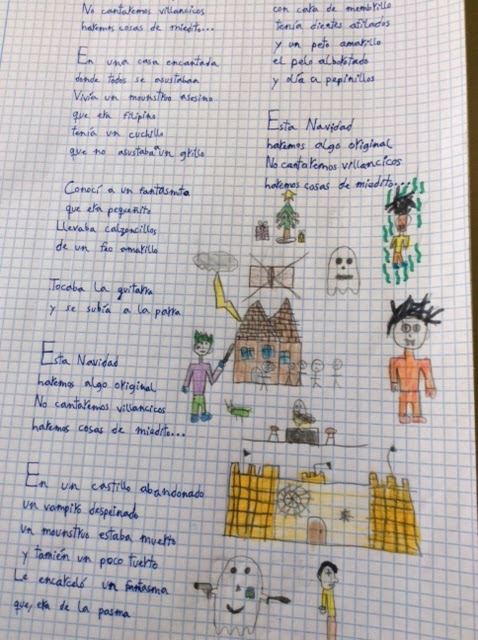 No cantaremos villancicos
haremos cosas de miedito...
En una casa encantada
donde todos se asustaban
Vivía un mounstruo asesino
que era filipino
tenía un cuchillo
que no asustaba a un grillo
Conocí a un fantasmita
que era pequeñito
Llevaba calzoncillos
de un feo amarillo
Tocaba la guitarra
y se subía a la parra
Esta Navidad
haremos algo original
No cantaremos villancicos
haremos cosas de miedito...
En un castillo abandonado
un vampiro despeinado
un mounstruo estaba muerto
y tamién un poco tuerto
Le encarceló un fantasma
que, era de la pasma
con cara de membrillo
tenía dientes afilados
y un peto amarillo
el pelo alborotado
y olía a pepinillos
Esta Navidad
haremos algo original
No cantaremos villancicos
haremos cosas de miedito...